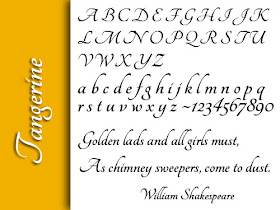 Tangerine
A B C D E F G H I J K
L M N O P Q R S T U
V W X Y Z
a b c d e f g h i j k l m n o p q
r s t u v w x y z ~1234567890
Golden lads and all girls must,
As chimney sweepers, come to dust.
William Shakespeare